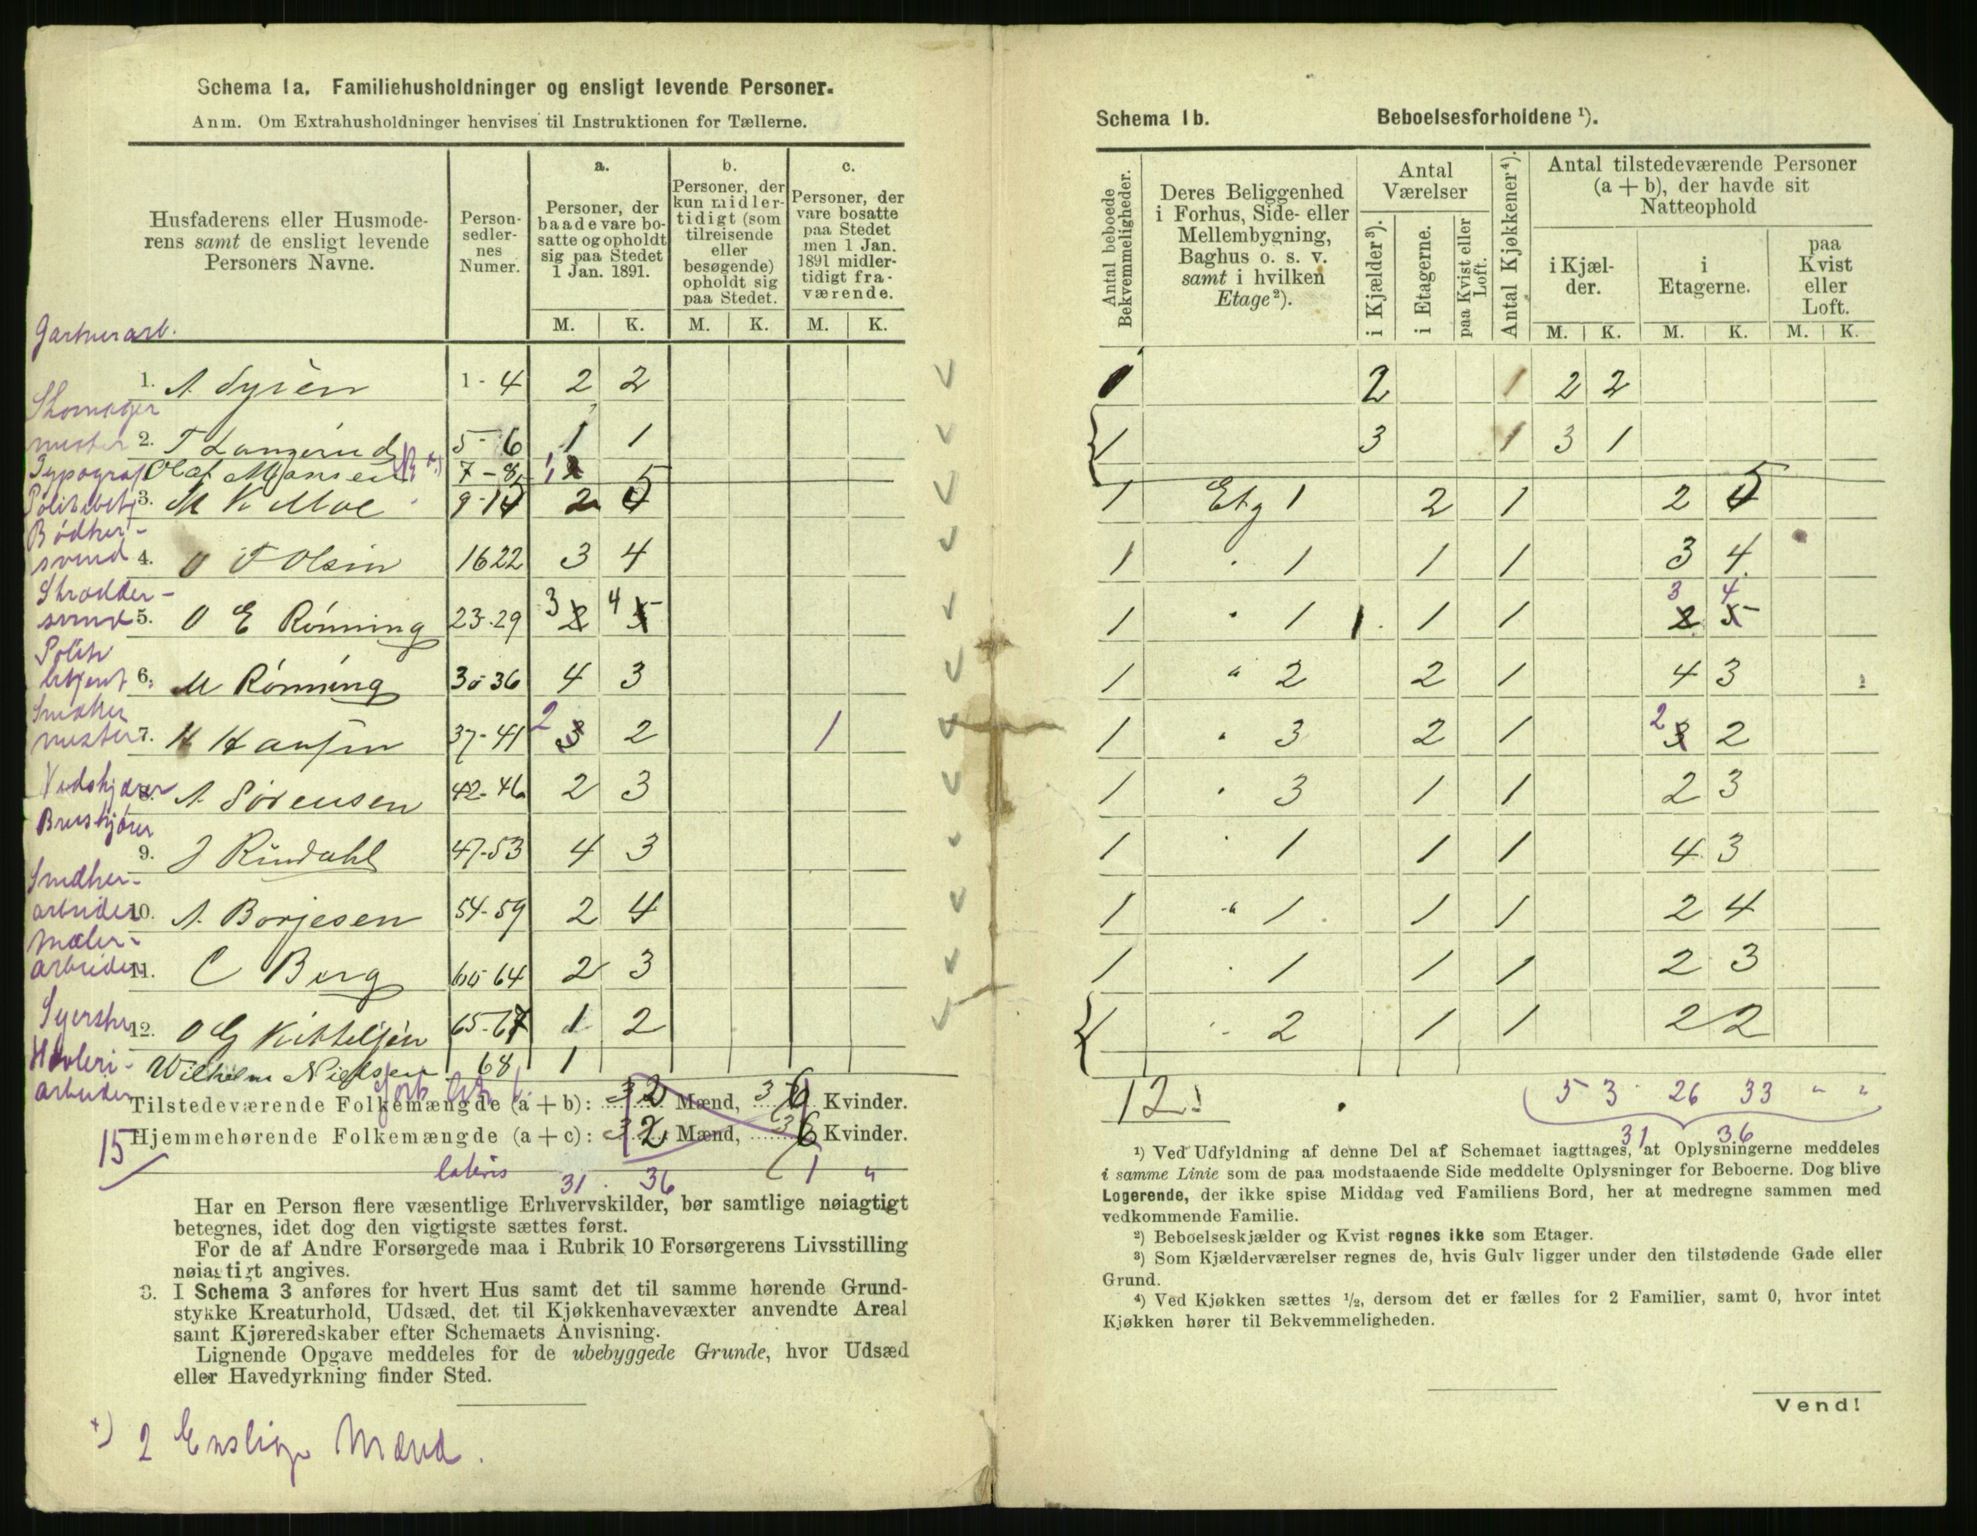 Schema 1a. Familiehusholdninger og ensligt levende Personer.
Anm. Om Extrahusholdninger henvises til Instruktionen for Tællerne.
Husfaderens eller Husmoderens samt de ensligt levende Personers Navne.
Personsedlernes Numer.
a. Personer, der baade vare bosatte og opholdt sig paa Stedet 1 Jan. 1891.
b. Personer, der kun midlertidigt (som tilreisende eller besøgende) opholdt sig paa Stedet.
c. Personer, der vare bosatte paa Stedet men 1 Jan. 1891 midlertidigt fraværende.
M. K. M. K. M. K.
Gartnerarb.
1. A Syrèn 1-4 2 2
Skomager
mester 2. T Langerud 5-6 1 1
Typograf Olaf Monsen 7-8
Politibetj 3. M K Moe 2 5
Bødker-
svend 4. O T Olsen 16 22 3 4
Skrædder-
svend 5. O E Rønning 23-29 3 4
Politi
betjent 6. M Rønning 30-36 4 3
Snedker
mester 7. H Hansen 37-41 2 2 1
Vedskjærer 8. A. Sørensen 42-46 2 3
Bruskjører
9. J Rindahl 47-53 4 3
Snedker-
arbeider 10. A. Borjesen 54-59 2 4
Maler-
arbeider 11. C Berg 60-64 2 3
Syerske 12. O G Kittelsen 65-67 1 2
Høvleri-
arbeider Wilhelm Nielsen 68 1
Tilstedeværende Folkemængde (a + b): 32 Mænd, 36 Kvinder.
Hjemmehørende Folkemængde (a + c): 32 Mænd, 36 Kvinder.
15
lateris 31. 36 1 "
Har en Person flere væsentlige Erhvervskilder, bør samtlige nøiagtigt
betegnes, idet dog den vigtigste sættes først.
For de af Andre Forsørgede maa i Rubrik 10 Forsørgerens Livsstilling
nøiagtigt angives.
3. I Schema 3 anføres for hvert Hus samt det til samme hørende Grund-
stykke Kreaturhold, Udsæd, det til Kjøkkenhavevæxter anvendte Areal
samt Kjøreredskaber efter Schemaets Anvisning.
Lignende Opgave meddeles for de ubebyggede Grunde, hvor Udsæd
eller Havedyrkning finder Sted.
+) 2 Enslige Mænd.
Schema 1b. Beboelsesforholdene ¹).
Antal beboede Bekvemmeligheder.
Deres Beliggenhed i Forhus, Side- eller Mellembygning, Baghus o. s. v. samt i hvilken Etage ²).
Antal Værelser
i Kjælder ³).
i Etagerne.
paa Kvist eller Loft.
Antal Kjøkkener ⁴).
Antal tilstedeværende Personer (a + b), der havde sit Natteophold
i Kjælder.
i Etagerne.
paa Kvist eller Loft.
M. K. M. K. M. K.
1 2 1 2 2
1 3 1 3 1
1 Etg 1 2 1 2 5
1 " 1 1 1 3 4
1 " 1 1 1 3 4
1 " 2 2 1 4 3
1 " 3 2 1 2 2
1 " 3 1 1 2 3
1 1 1 1 4 3
1 " 1 1 1 2 4
1 " 1 1 1 2 3
1 " 2 1 1 2 2
12 5 3 26 33 " "
31 36
¹) Ved Udfyldning af denne Del af Schemaet iagttages, at Oplysningerne meddeles
i samme Linie som de paa modstaaende Side meddelte Oplysninger for Beboerne. Dog blive
Logerende, der ikke spise Middag ved Familiens Bord, her at medregne sammen med
vedkommende Familie.
²) Beboelseskjælder og Kvist regnes ikke som Etager.
³) Som Kjælderværelser regnes de, hvis Gulv ligger under den tilstødende Gade eller
Grund.
⁴) Ved Kjøkken sættes ½, dersom det er fælles for 2 Familier, samt 0, hvor intet
Kjøkken hører til Bekvemmeligheden.
Vend!